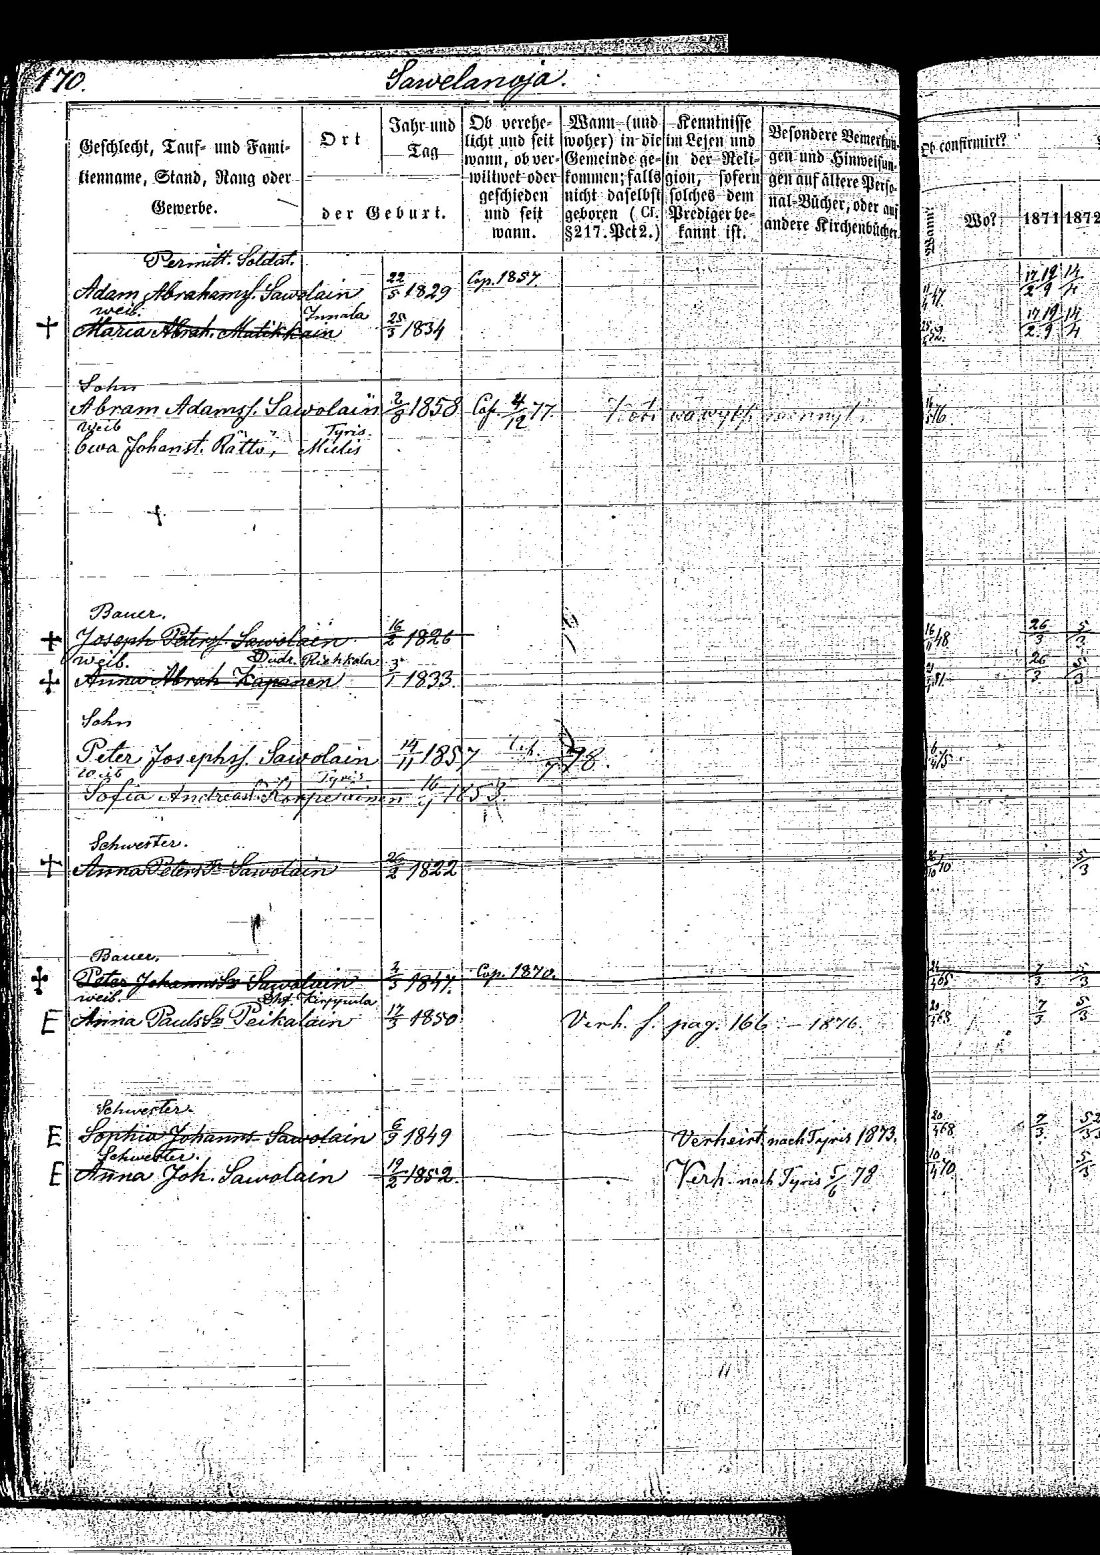 170.
Sawelanoja.
Geschlecht, Tauf- und Fami-
lienname, Stand, Rang oder
Gewerbe.
Ort
der Geburt.
Jahr und
Tag
Ob verehe-
licht und seit
wann, ob ver-
wittwet oder
geschieden
und seit
wann.
Wann (und
woher) in die
Gemeinde ge-
kommen; falls
nicht daselbst
geboren (Cf.
§217. Pct 2.)
Kenntnisse
im Lesen und
in der Reli-
gion, sofern
solches dem
Prediger be-
kannt ist.
Besondere Bemerkun-
gen und Hinweisun-
gen auf ältere Perso-
nal-Bücher, oder auf
andere Kirchenbücher.
Ob confirmirt?
Wann?
Wo?
1871
1872
Permitt. Soldat.
Adam Abrahamsf. Sawolain 22/5 1829 Cop. 1857. 47. 17/2 19/9 14/4
weib. Innala
+ Maria Abrah. Matikkain 25/3 1834 52. 17/2 19/9 14/4
Sohn
Abram Adamsf. Sawolain 2/8 1858 Cop. 4/12 77. 16/ 76.
weib Tyris.
Ewa Johanst. Rättö,
Bauer.
+ Joseph Petersf. Sawolain 16/2 1826 16/11 48 26/3 5/3
weib. Dudr. Riehkala
+ Anna Abrah Kaponen 3/1 1833 51. 26/3 5/3
Sohn
Peter Josephsf. Sawolain 14/11 1857 78. 75.
weib Tyris
Sofia Andreast. 1853.
Schwester.
+ Anna Peters Sawolain 26/2 1822 40 5/3
Bauer.
+ Peter Johanns Sawolain 3/3 1847. Cop. 1870. 65 7/3 5/3
weib. Kirppula
E Anna Pauls Peikalain 17/3 1850 Verh. f. pag. 166 – 1876. 68 7/3 5/3
Schwester
E Sophia Johanns Sawolain 6/9 1849 Verheirt. nach Tyris 1873. 20/4 68 7/3
Schwester.
E Anna Joh. Sawolain 19/2 1852. Verh. nach Tyris 5/6 78 10/4 70 5/3